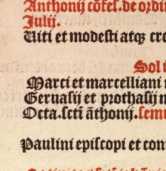 Anthonij cōfes. de ordi
Julij.
Uiti et modesti atqꝫ cre
Sol i
Marci et marcelliani
Geruasij et prothasij m
Octa. scti āthonij. sem
Paulini episcopi et con